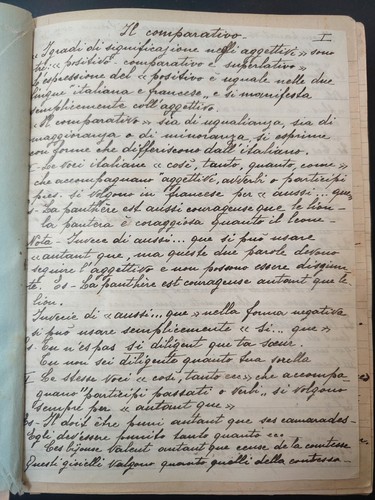 Il comparativo. I
« I gradi di significazione negli aggettivi » sono
tre: « positivo - comparativo e superlativo »
L'espressione del « positivo è uguale nelle due
lingue italiana e francese, e si manifesta
semplicemente coll'aggettivo.
« Il comparativo » sia di uguaglianza, sia di
maggioranza o di minoranza, si esprime
con forme che differiscono dall'italiano.
I - Le voci italiane « così, tanto, quanto, come »
che accompagnano aggettivi, avverbi o participi
pres. si volgono in francese per « aussi... que
Es - La panthère est aussi courageuse que le lion -
la pantera è coraggiosa quanto il leone -
Nota - Invece di aussi... que si può usare
« autant que, ma queste due parole devono
seguire l'aggettivo e non possono essere disgiun-
te. Es - La panthère est courageuse autant que le
lion.
Invece di « aussi... que » nella forma negativa
si può usare semplicemente « si... que »
Es. Tu n'es pas si diligent que ta sœur.
Tu non sei diligente quanto tua sorella
II - Le stesse voci « così, tanto ecc » che accompa-
gnano "participi passati o verbi" si volgono
sempre per « autant que »
Es - Il doit être puni autant que ses camarades -
Egli dev'essere punito tanto quanto ...
Ces bijoux valent autant que ceux de la comtesse
Questi gioielli valgono quanto quelli della contessa -